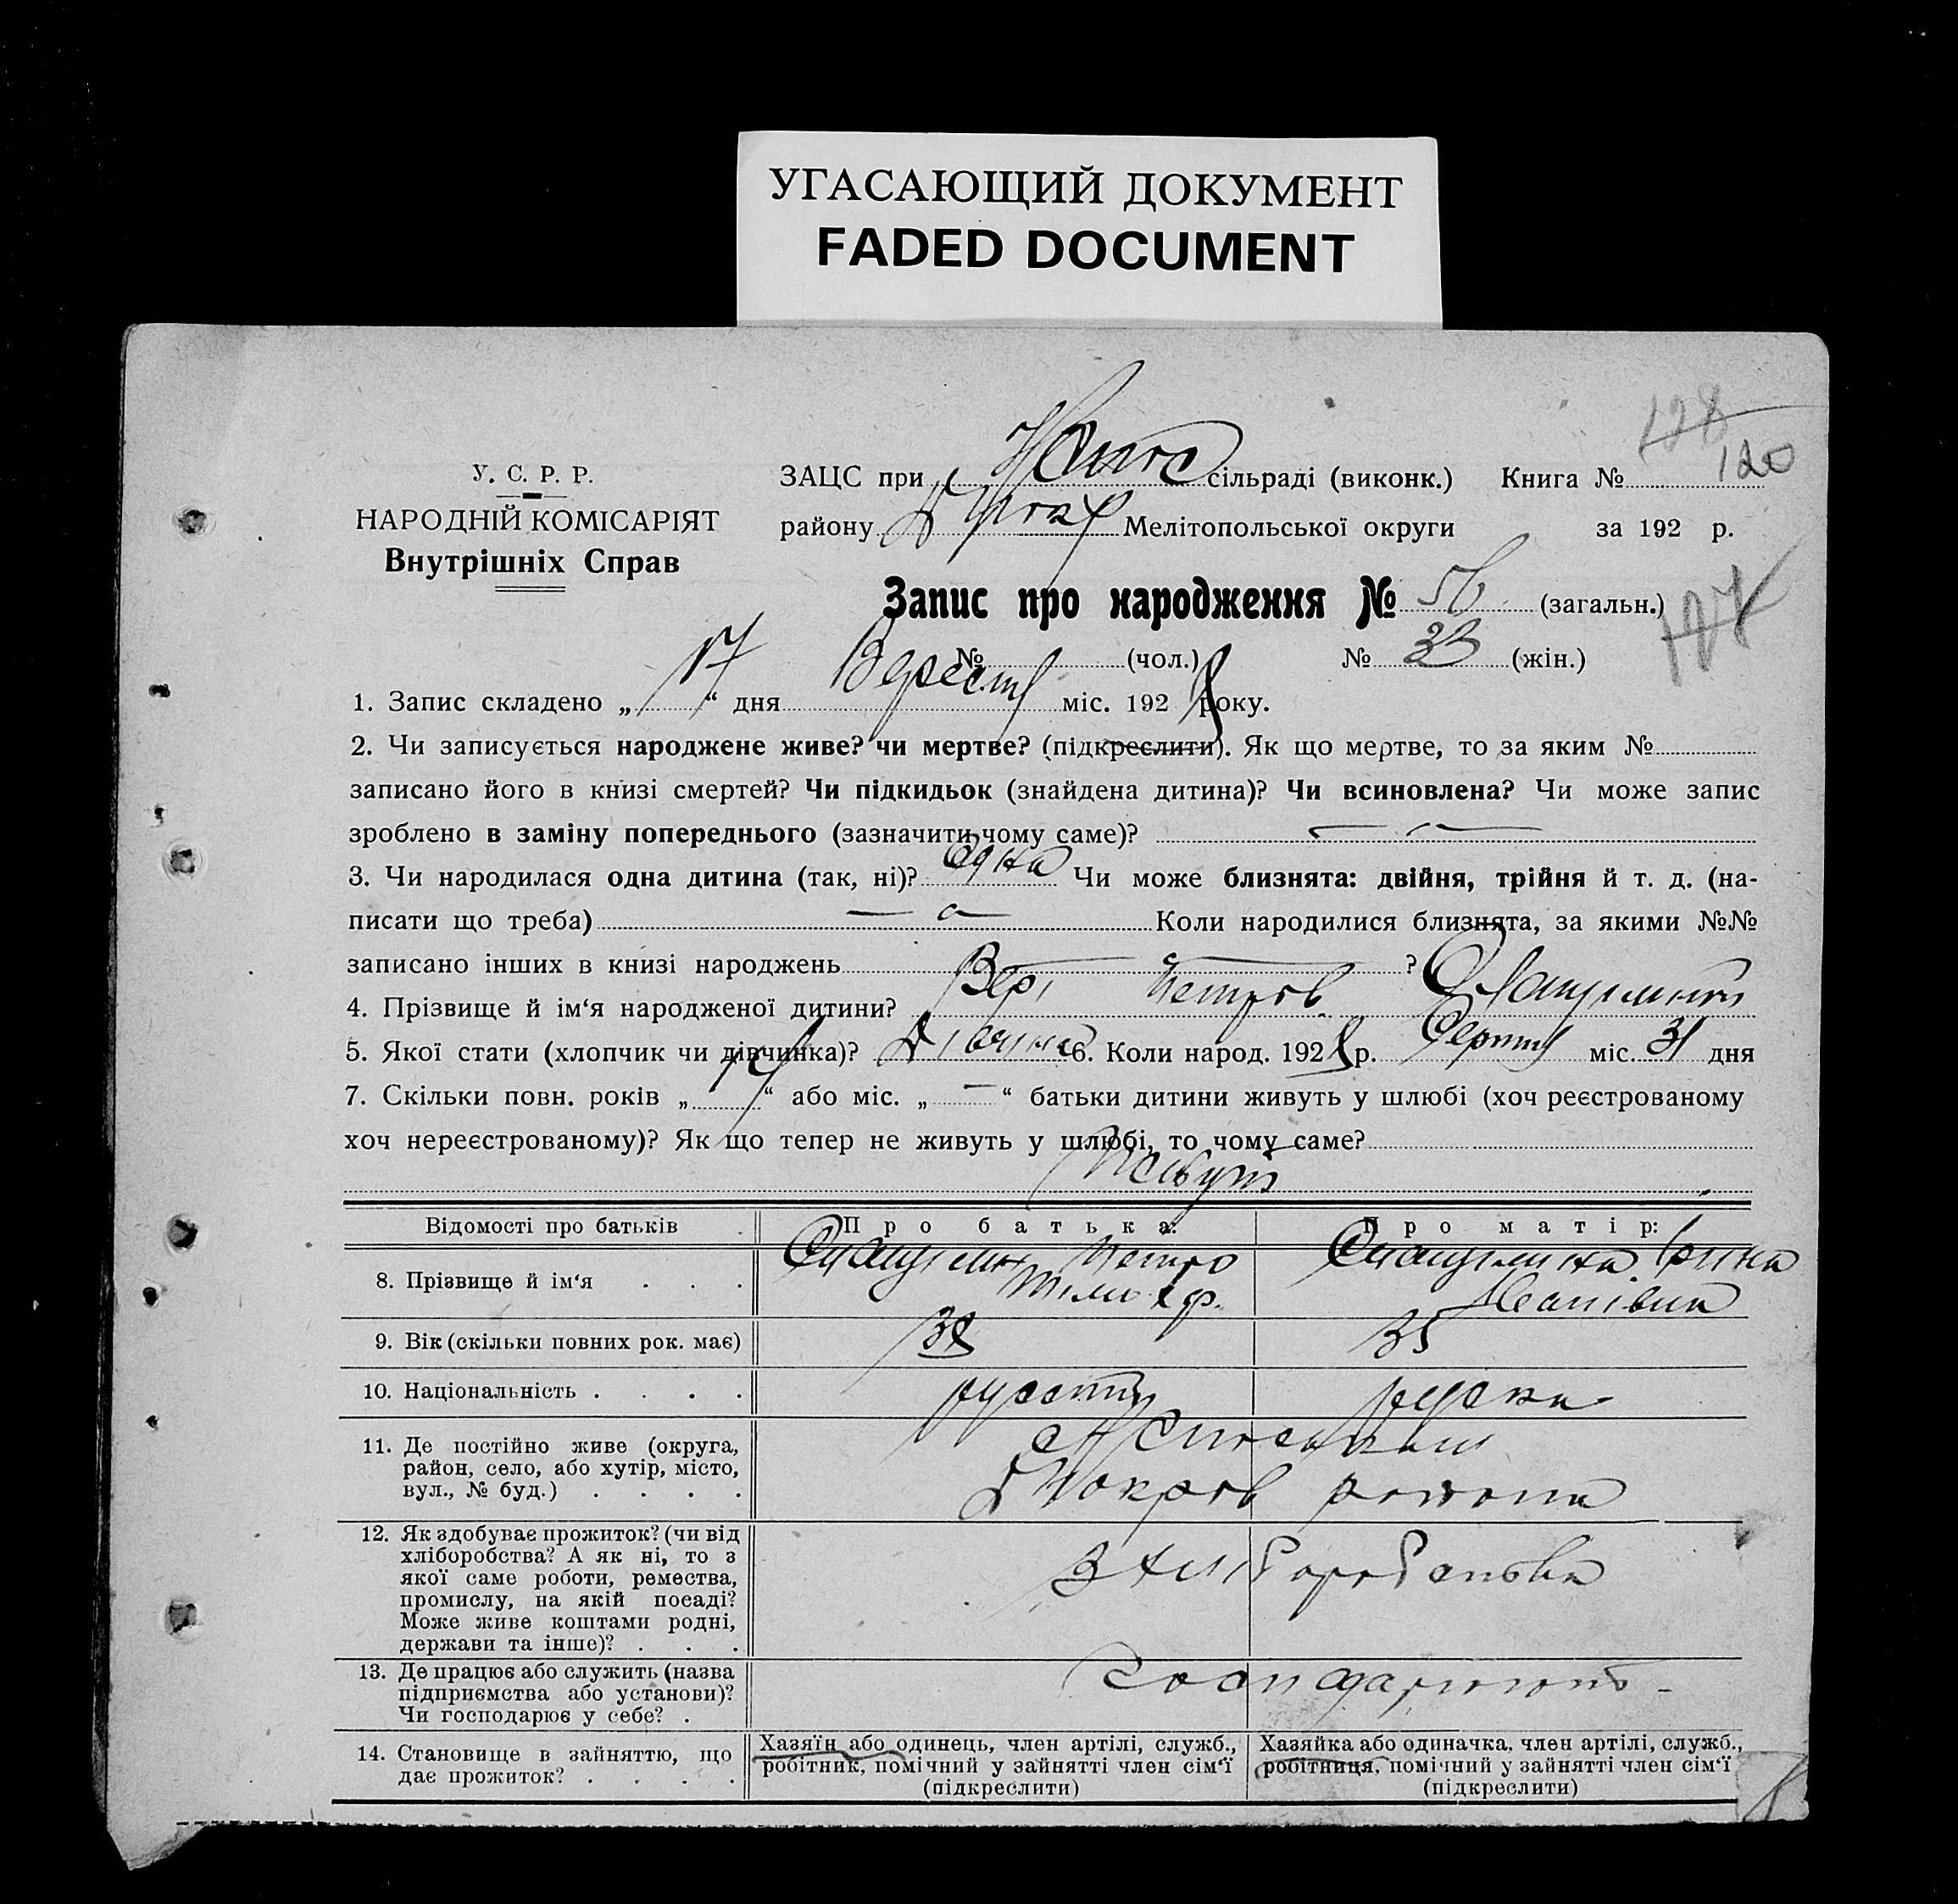 УГАСАЮЩИЙ ДОКУМЕНТ
FADED DOCUMENT
128
120
У. С. Р. Р.
НАРОДНІЙ КОМІСАРІЯТ
Внутрішніх Справ
ЗАЦС при сільраді (виконк.) Книга №
району Мелітопольської округи за 192 р.
Запис про народження № 56 (загальн.)
№ (чол.) № 33 (жін.)
1. Запис складено „ 17 “ дня Вересня міс. 192 8 року.
2. Чи записується народжене живе? чи мертве? (підкреслити). Як що мертве, то за яким №
записано його в книзі смертей? Чи підкидьок (знайдена дитина)? Чи всиновлена? Чи може запис
зроблено в заміну попереднього (зазначити чому саме)? —
3. Чи народилася одна дитина (так, ні)? Одна Чи може близнята: двійня, трійня й т. д. (на-
писати що треба) — Коли народилися близнята, за якими №№
записано інших в книзі народжень ?
4. Прізвище й ім‘я народженої дитини? Петров
5. Якої стати (хлопчик чи дівчинка)? Дівчина 6. Коли народ. 192 8 р. Серпня міс. 31 дня
7. Скільки повн. років „ “ або міс. „ — “ батьки дитини живуть у шлюбі (хоч реєстрованому
хоч нереєстрованому)? Як що тепер не живуть у шлюбі, то чому саме?
Відомості про батьків Про батька: Про матір:
8. Прізвище й ім‘я . . . Петро Ірина
Іванівна
9. Вік (скільки повних рок. має) 38 35
10. Національність . . . . руский руска
11. Де постійно живе (округа,
район, село, або хутір, місто,
вул., № буд.) . . . . Якокрів района
12. Як здобуває прожиток? (чи від
хліборобства? А як ні, то з
якої саме роботи, ремества,
промислу, на якій посаді?
Може живе коштами родні,
держави та інше)? . . .
З хліборобства
13. Де працює або служить (назва
підприємства або установи)?
Чи господарює у себе? .
Господарюють
14. Становище в зайняттю, що
дає прожиток? . . . .
Хазяїн або одинець, член артілі, служб.,
робітник, помічний у зайнятті член сім‘ї
(підкреслити)
Хазяйка або одиначка, член артілі, служб.,
робітниця, помічний у зайнятті член сім‘ї
(підкреслити)